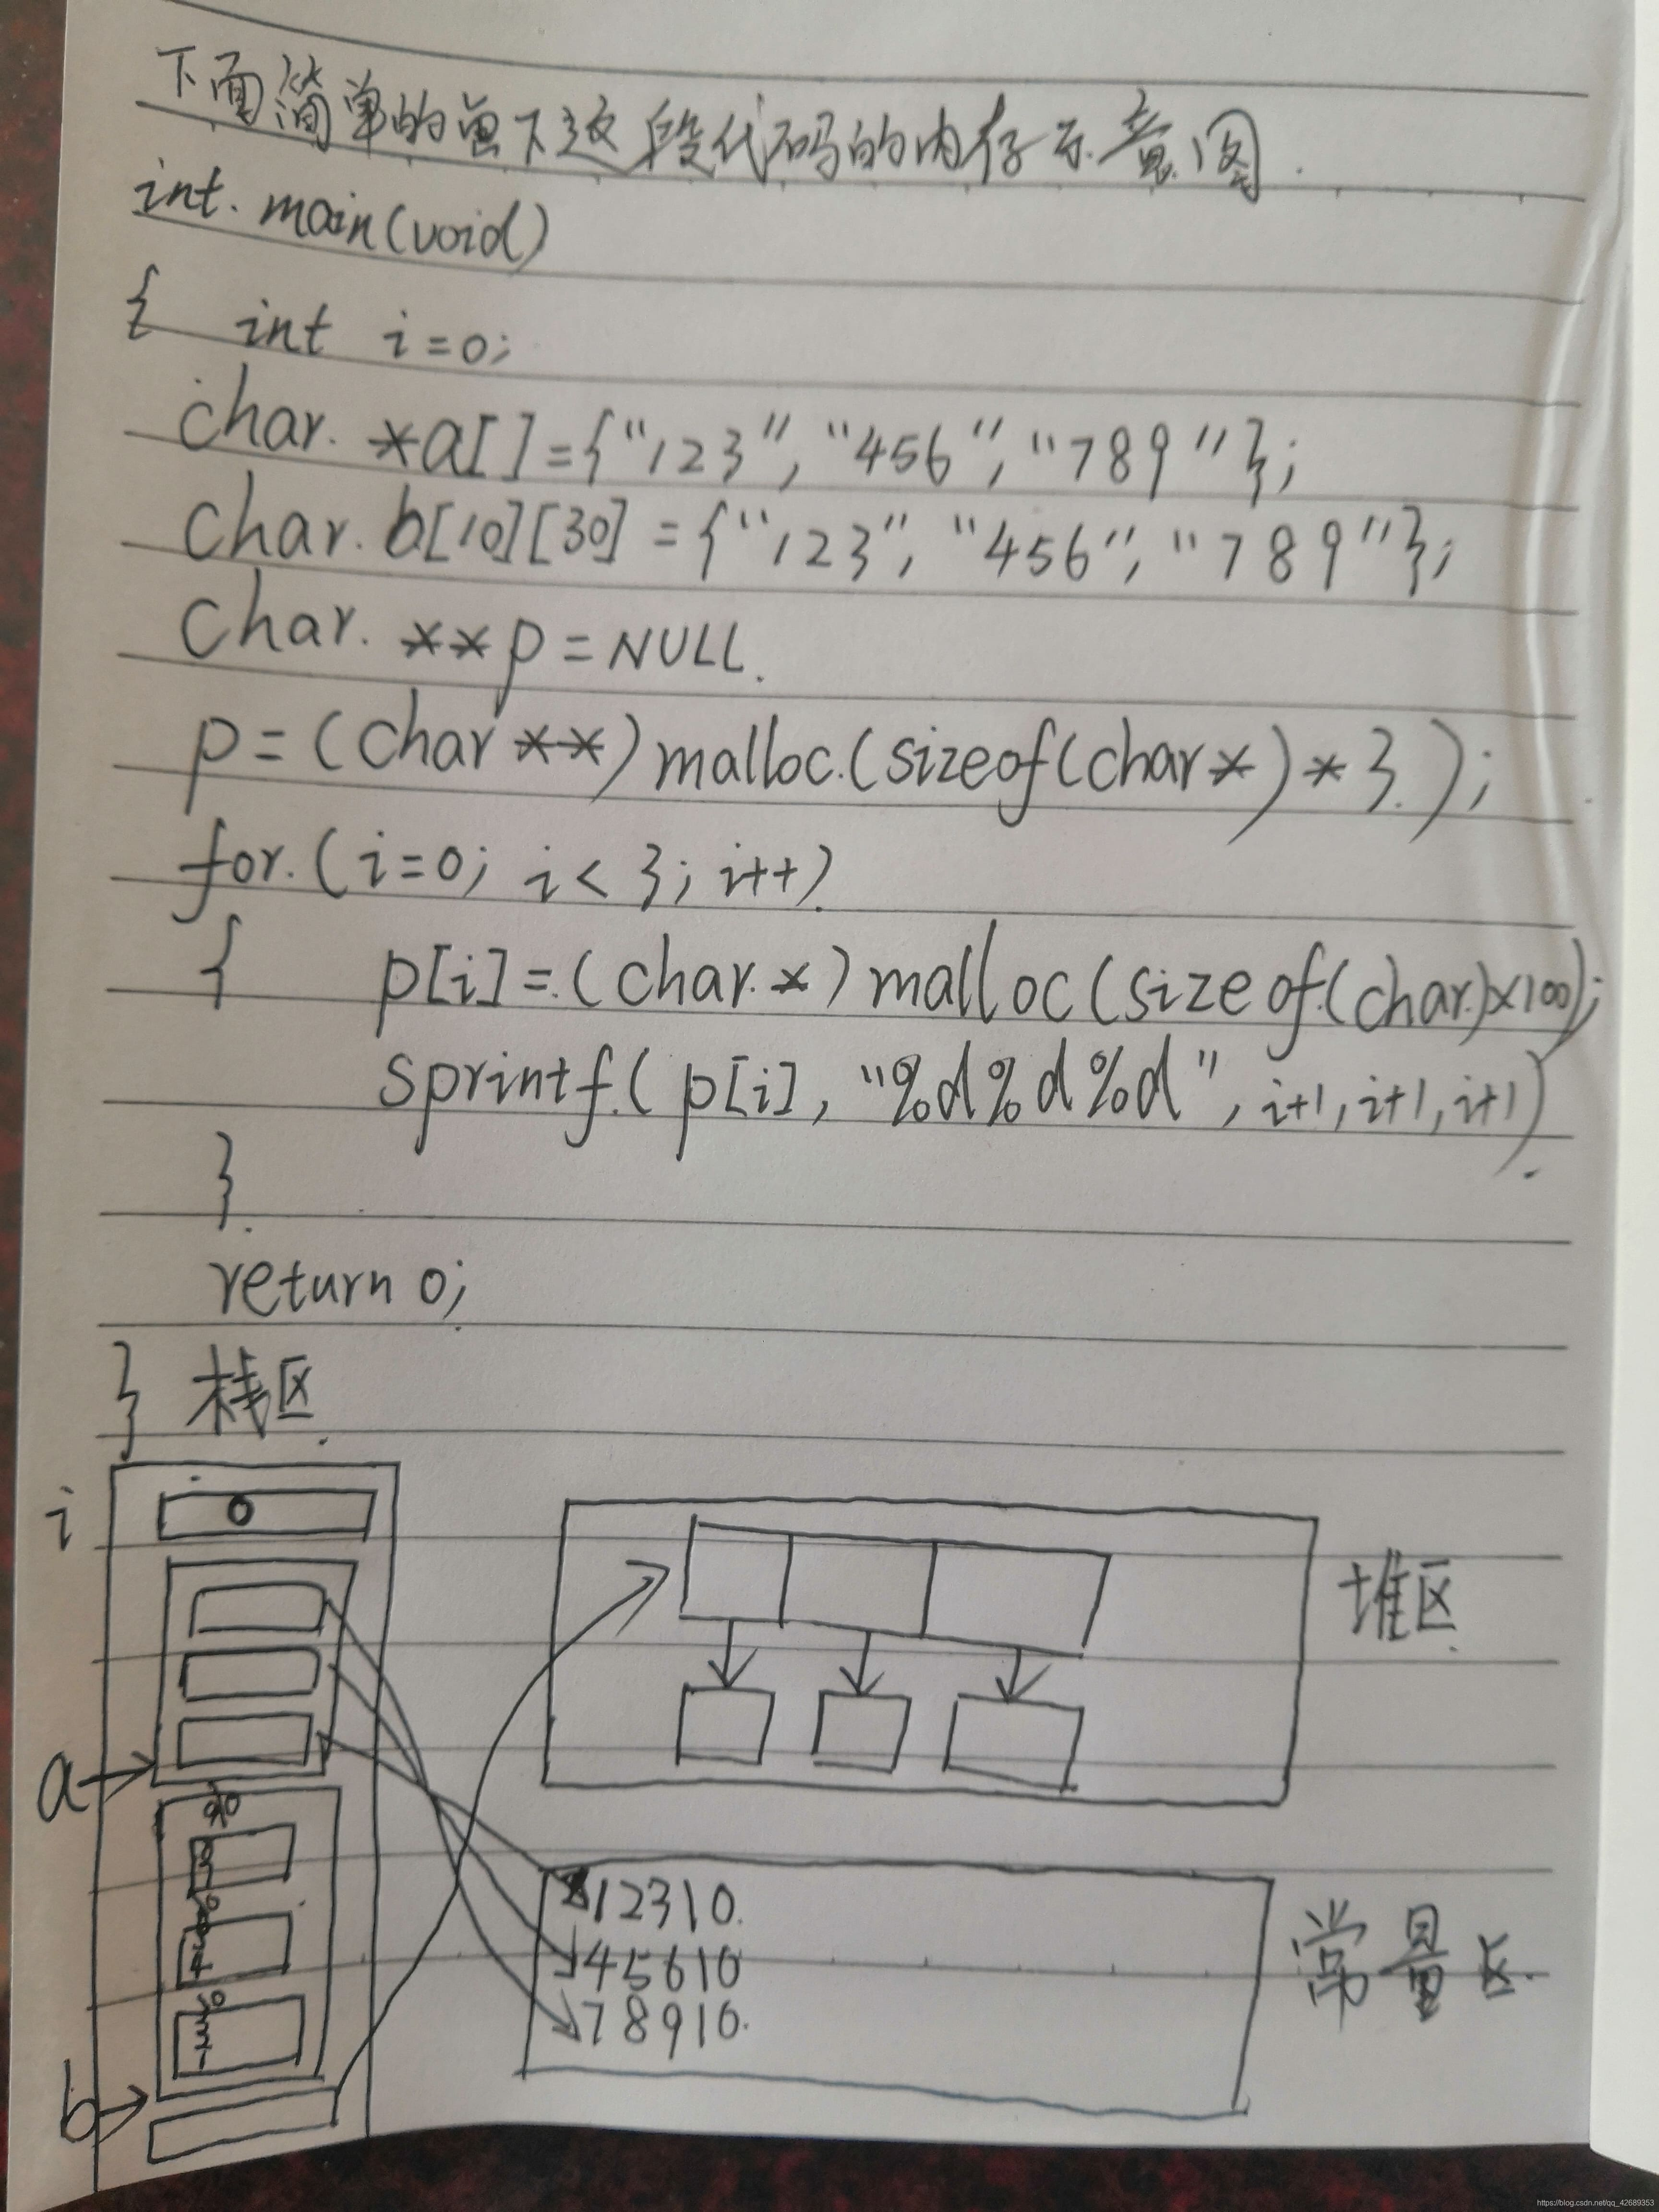 下面简单的画下这段代码的内存示意图.
int. main(void)
{ int i=0;
char. *a[]={"123","456","789"};
char. b[10][30]={"123","456","789"};
char. **p=NULL.
p=(char**)malloc.(sizeof(char*)*3.);
for.(i=0; i<3; i++)
{ p[i]=.(char.*)malloc(sizeof.(char.)×100);
sprintf.( p[i], "%d%d%d", i+1,i+1,i+1).
}.
return 0;
} 栈区.
i
0
堆区.
a
12310.
常量区.
45610
78910.
b
https://blog.csdn.net/qq_42689353